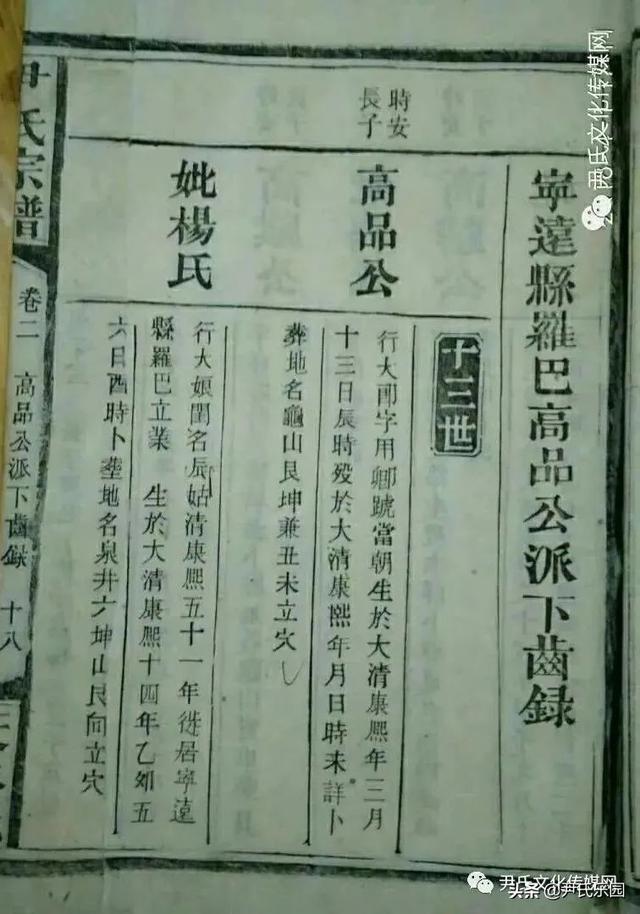 寧遠縣羅巴高品公派下齒録
十三世
時安
長子
高品公
行大郎字用卿號當朝生於大清康熙年三月
十三日辰時歿於大清康熙年月日時未詳卜
葬地名龜山艮坤兼丑未立穴
妣楊氏
行大娘閨名辰姑清康熙五十一年徙居寧遠
縣羅巴立業 生於大清康熙十四年乙夘五
六日酉時卜塟地名泉井六坤山艮向立穴
尹氏宗譜
卷二
高品公派下齒録
十八
尹氏文化传媒网
尹氏文化传媒网
头条 @尹氏乐园